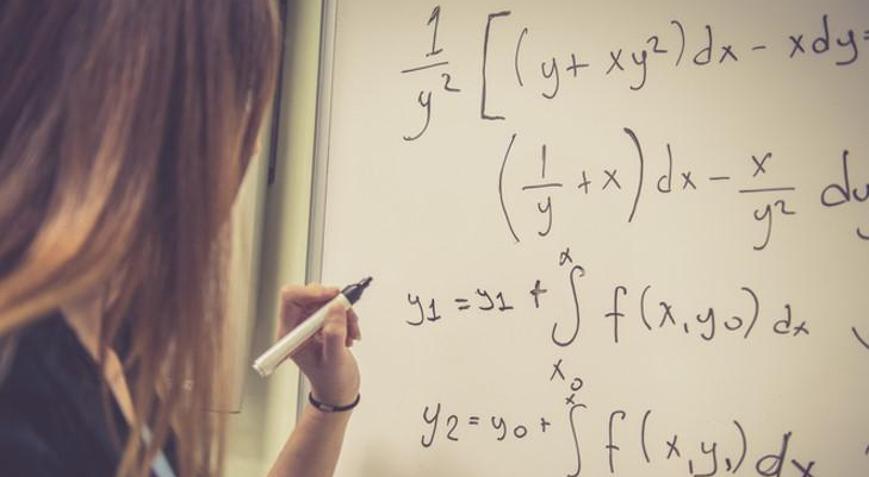 1/y² [(y + xy²)dx - xdy=
(1/y + x) dx - x/y² dy
y1 = y1 + ∫ₓ₀ˣ f(x,y0) dx
y2 = y0 + ∫ˣ f(x,y1) dx